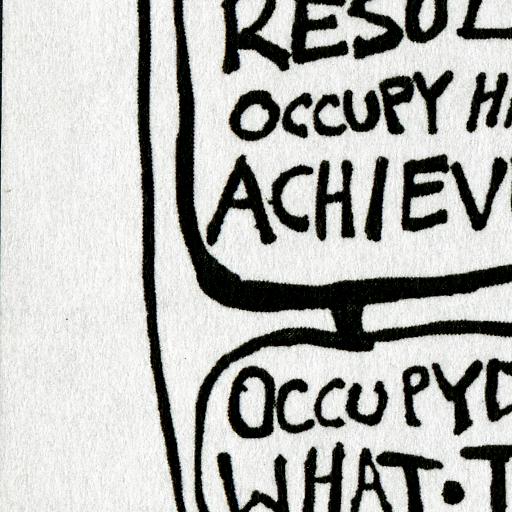 RESUL
OCCUPY HA
ACHIEV
OCCUPYD
WHAT•T